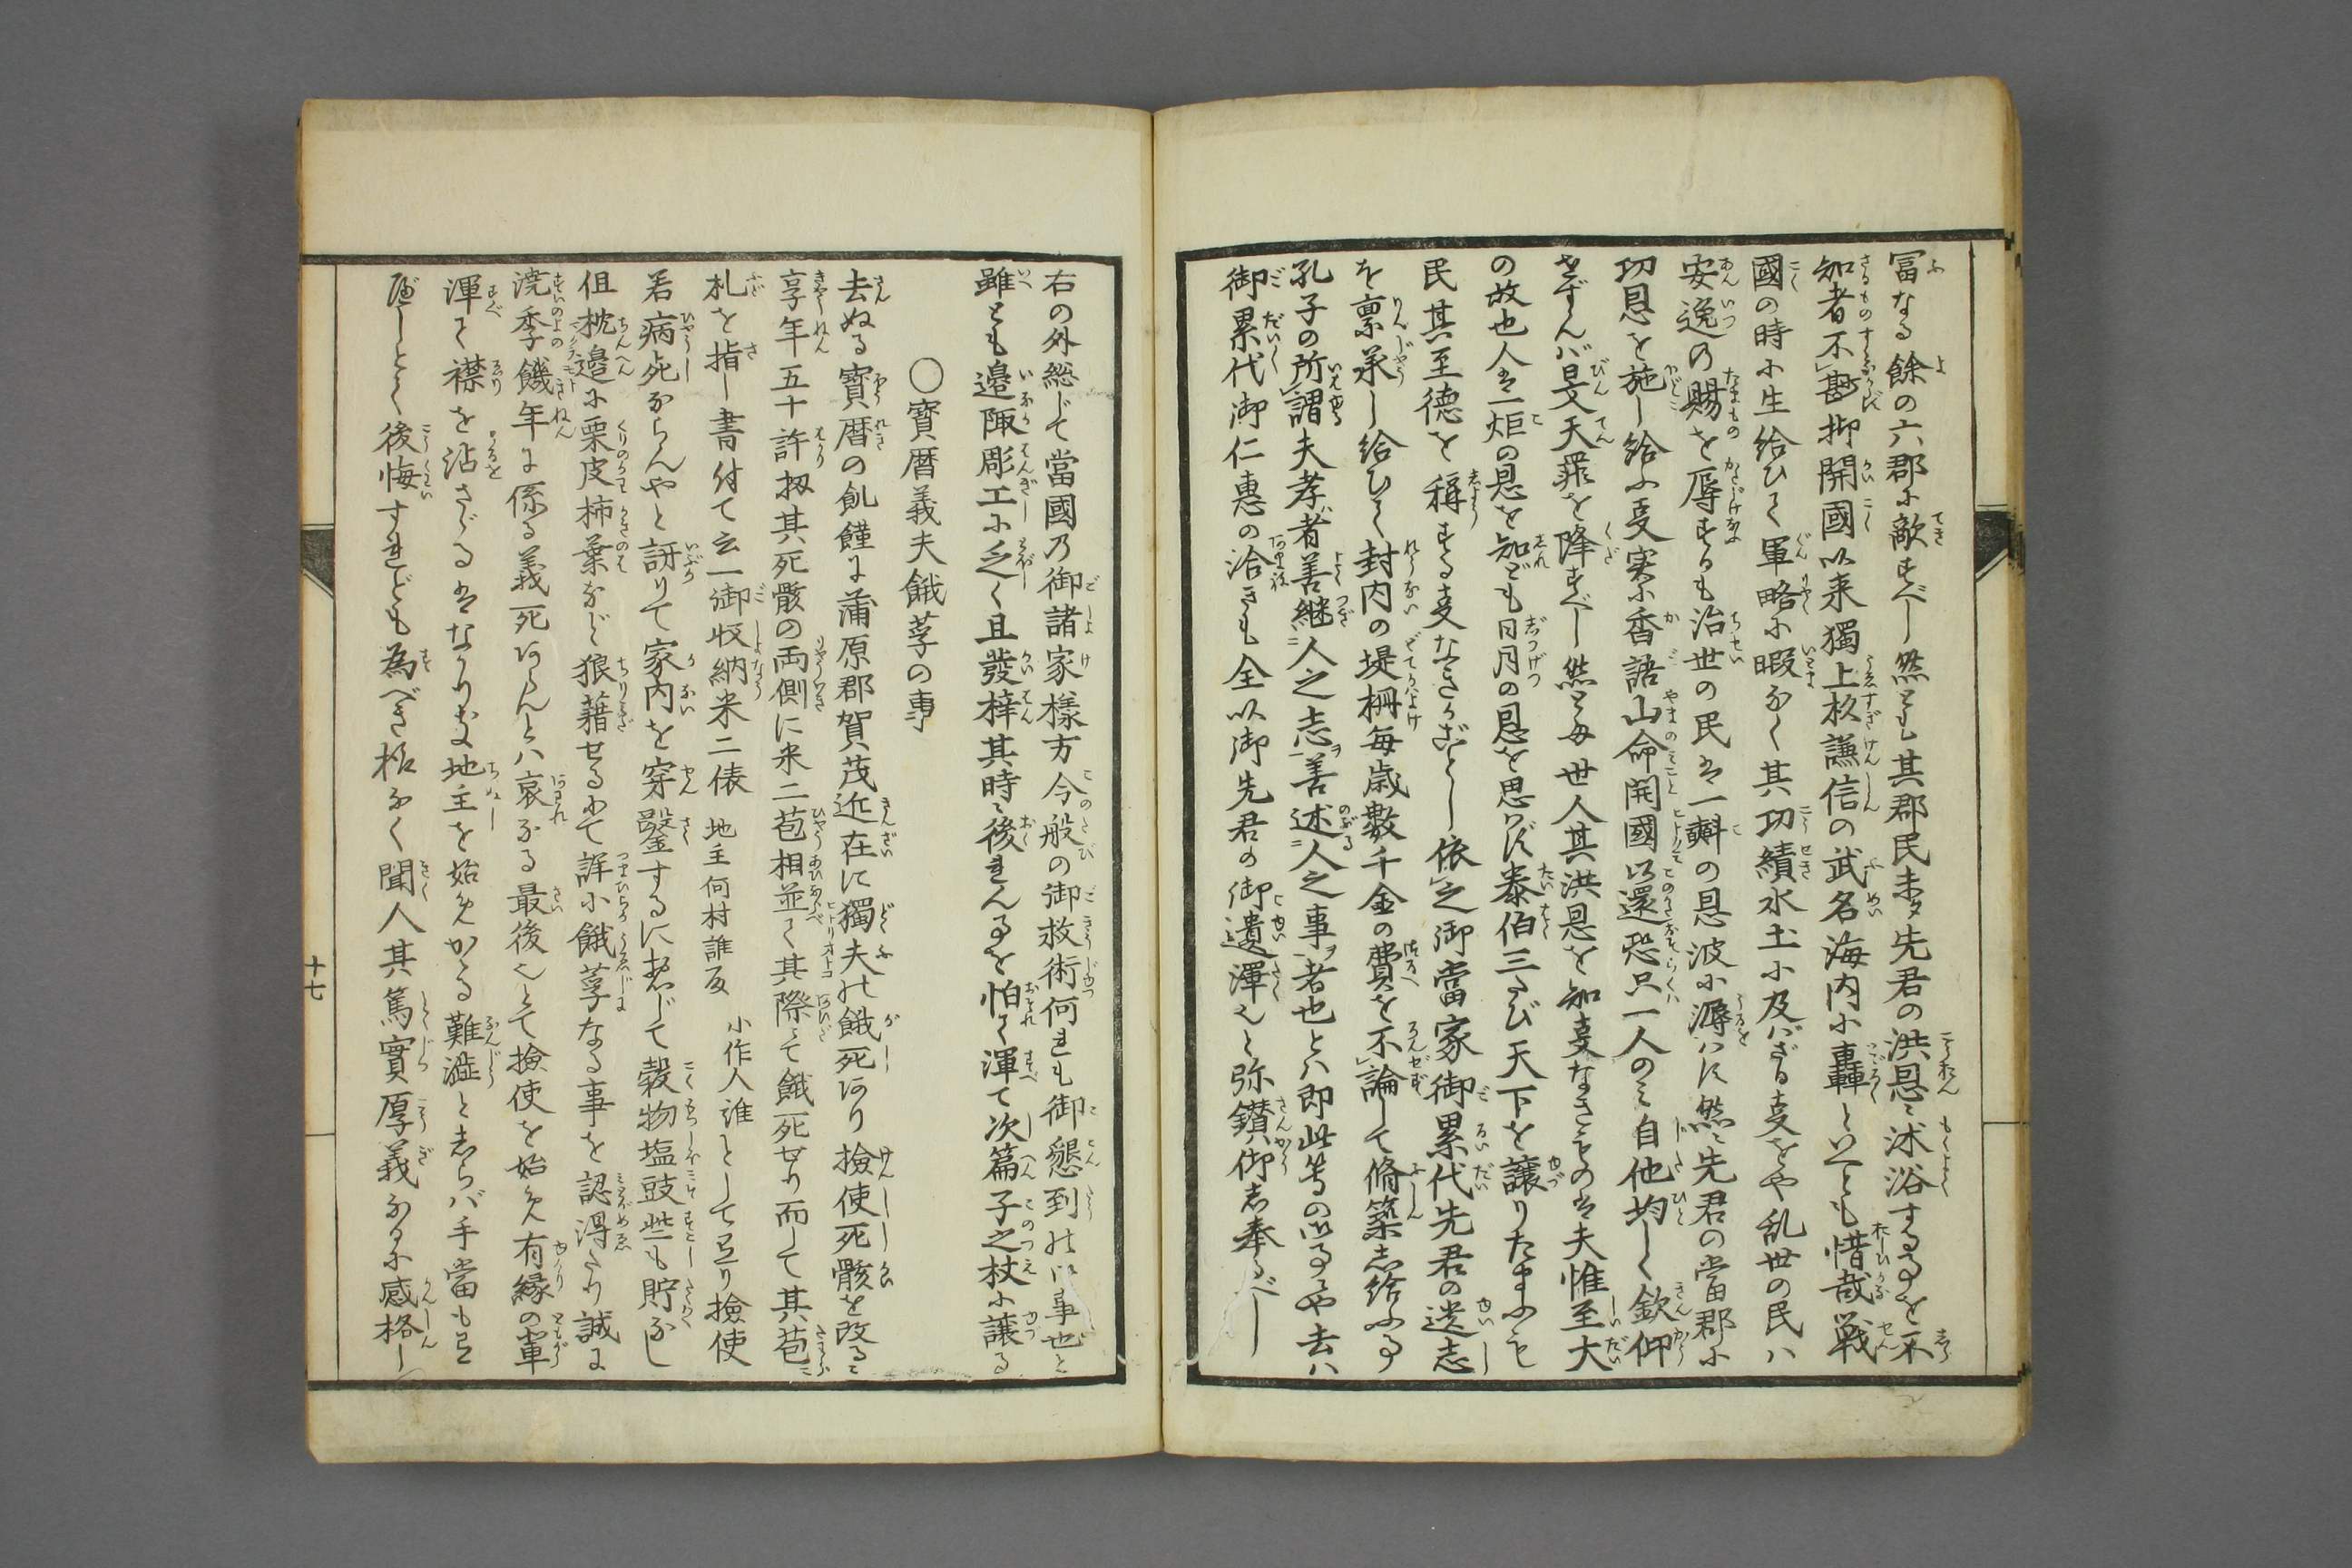 冨なる餘の六郡に敵すべし然とも其郡民未タ先君の洪恩ニ沐浴する事を不
知者不尠抑開國以来獨上杦謙信の武名海内に轟といへとも惜哉戦
國の時に生給ひて軍略に暇なく其功績水土に及ばざる叓をや乱世の民ハ
安逸の賜を辱するも治世の民は一㪺の恩波に溽ハず然ニ先君の當郡に
功恩を施し給ふ叓実に香語山命開國以還恐只一人のミ自他均しく欽仰
せずんば旻天罪を降すべし然とも世人其洪恩を知叓なきものは夫惟至大
の故也人は一炬の恩を知ども日月の恩を思ハず泰伯三たび天下を譲りたまふも
民其至徳を稱する叓なきがごとし依之御當家御累代先君の遺志
を禀承し給ひて封内の堤柵毎歳數千金の費を不論して脩築し給ふ事
孔子の所謂夫孝者善継人之志ヲ善述人之事ヲ者也とハ即此等の御事にや去ハ
御累代御仁惠の洽きも全以御先君の御遺澤也と弥鑚仰し奉るべし
右の外総じて當國乃御諸家様方今般の御救術何れも御懇到の御事也と
雖とも邉陬彫工に乏く且發梓其時ニ後れん事を怕て渾て次篇子之杖に譲る
〇寳暦義夫餓莩の事
去ぬる寳暦の飢饉に蒲原郡賀茂近在に獨夫の餓死あり撿使死骸を改るニ
享年五十許扨其死骸の両側に米二苞相並て其際ニて餓死せり而して其苞ニ
札を指し書付て云一御収納米二俵 地主何村誰殳 小作人誰として有り撿使
若病死ならんやと訝りて家内を穿鑿するに都じて穀物塩豉些も貯なし
但枕邉に栗皮柿葉など狼藉せるゆへ詳に餓莩なる事を認得たり誠に
澆季饑年に係る義死あらんとハ哀なる最後也とて撿使を始め有縁の輩
渾て襟を沾さゞるはなかりき地主を始めかゝる難澁としらバ手當も有
べしとて後悔すれども為べき様なく聞人其篤實厚義なるに感格し
十七